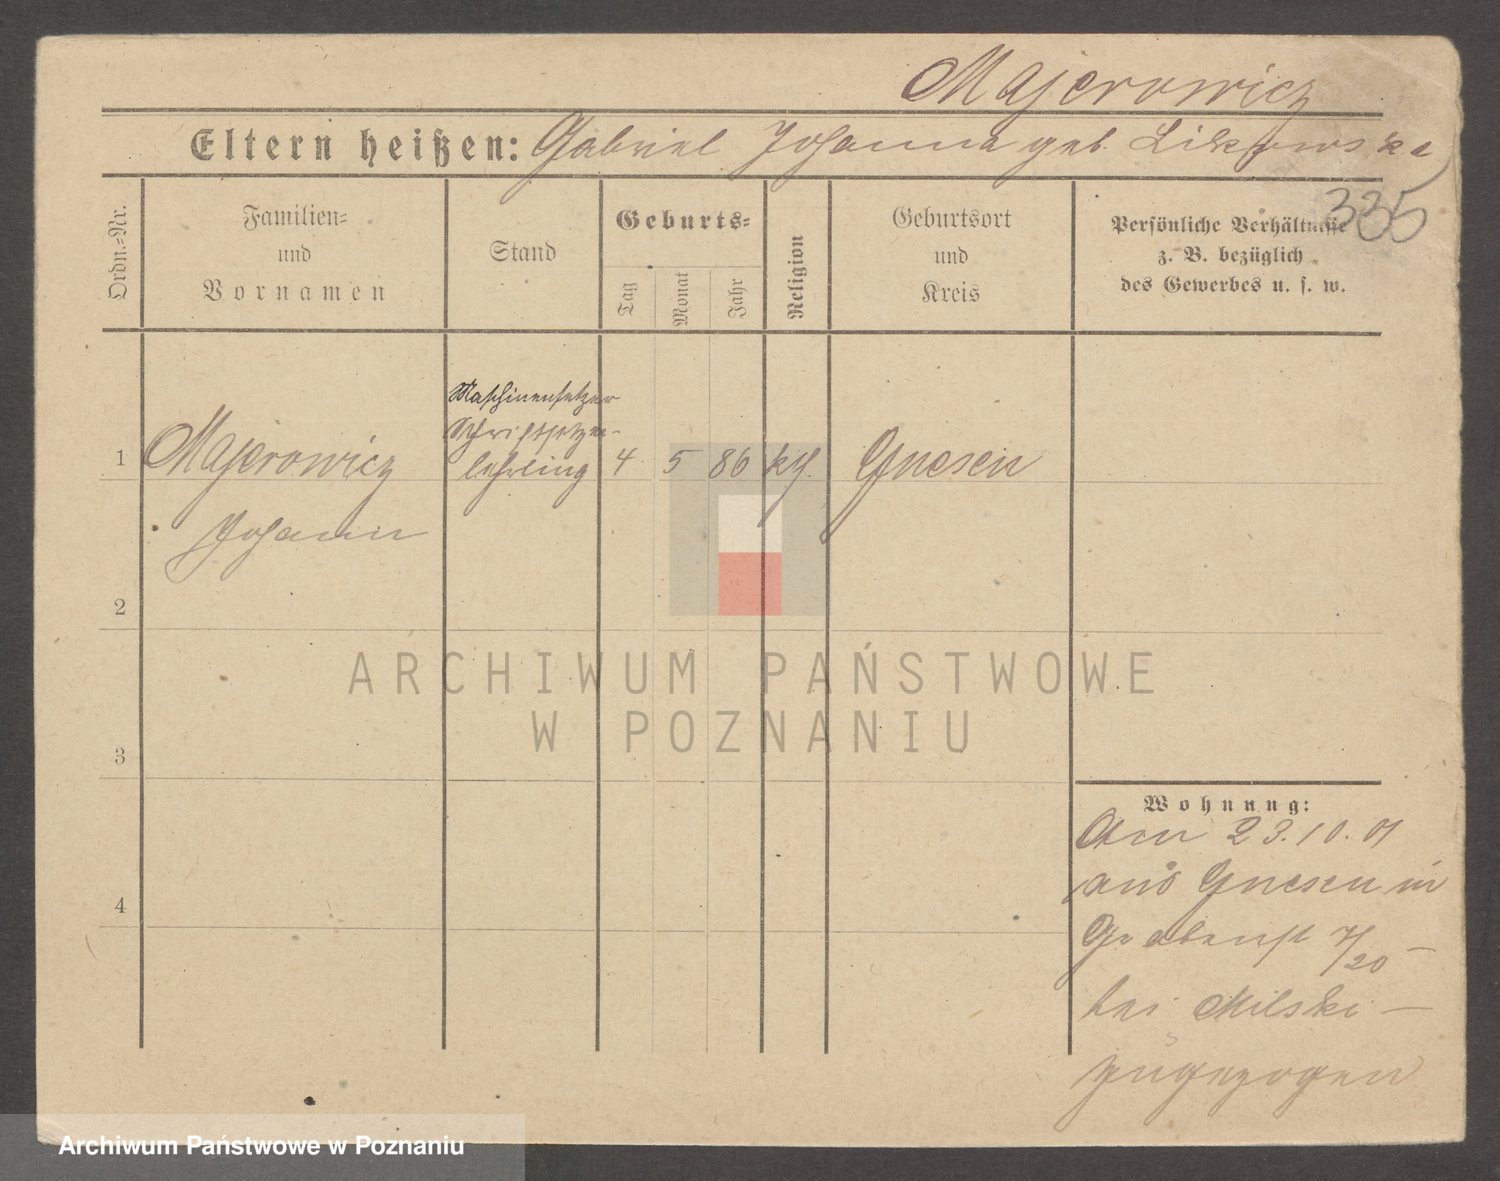 Majerowicz
Eltern heißen: Gabriel Johanna geb. Likowska
335
Ordn.=Nr.
Familien=
und
Vornamen
Stand
Geburts=
Tag
Monat
Jahr
Religion
Geburtsort
und
Kreis
Persönliche Verhältnisse
z. B. bezüglich
des Gewerbes u. s. w.
Maschinensetzer
Schriftsetzer-
1 Majerowicz lehrling 4 5 86 kth. Gnesen
Johann
2
ARCHIWUM PAŃSTWOWE
W POZNANIU
3
Wohnung:
Am 23.10.01
aus Gnesen in
4
Grabenst 7/20 –
bei Milski –
zugezogen
Archiwum Państwowe w Poznaniu